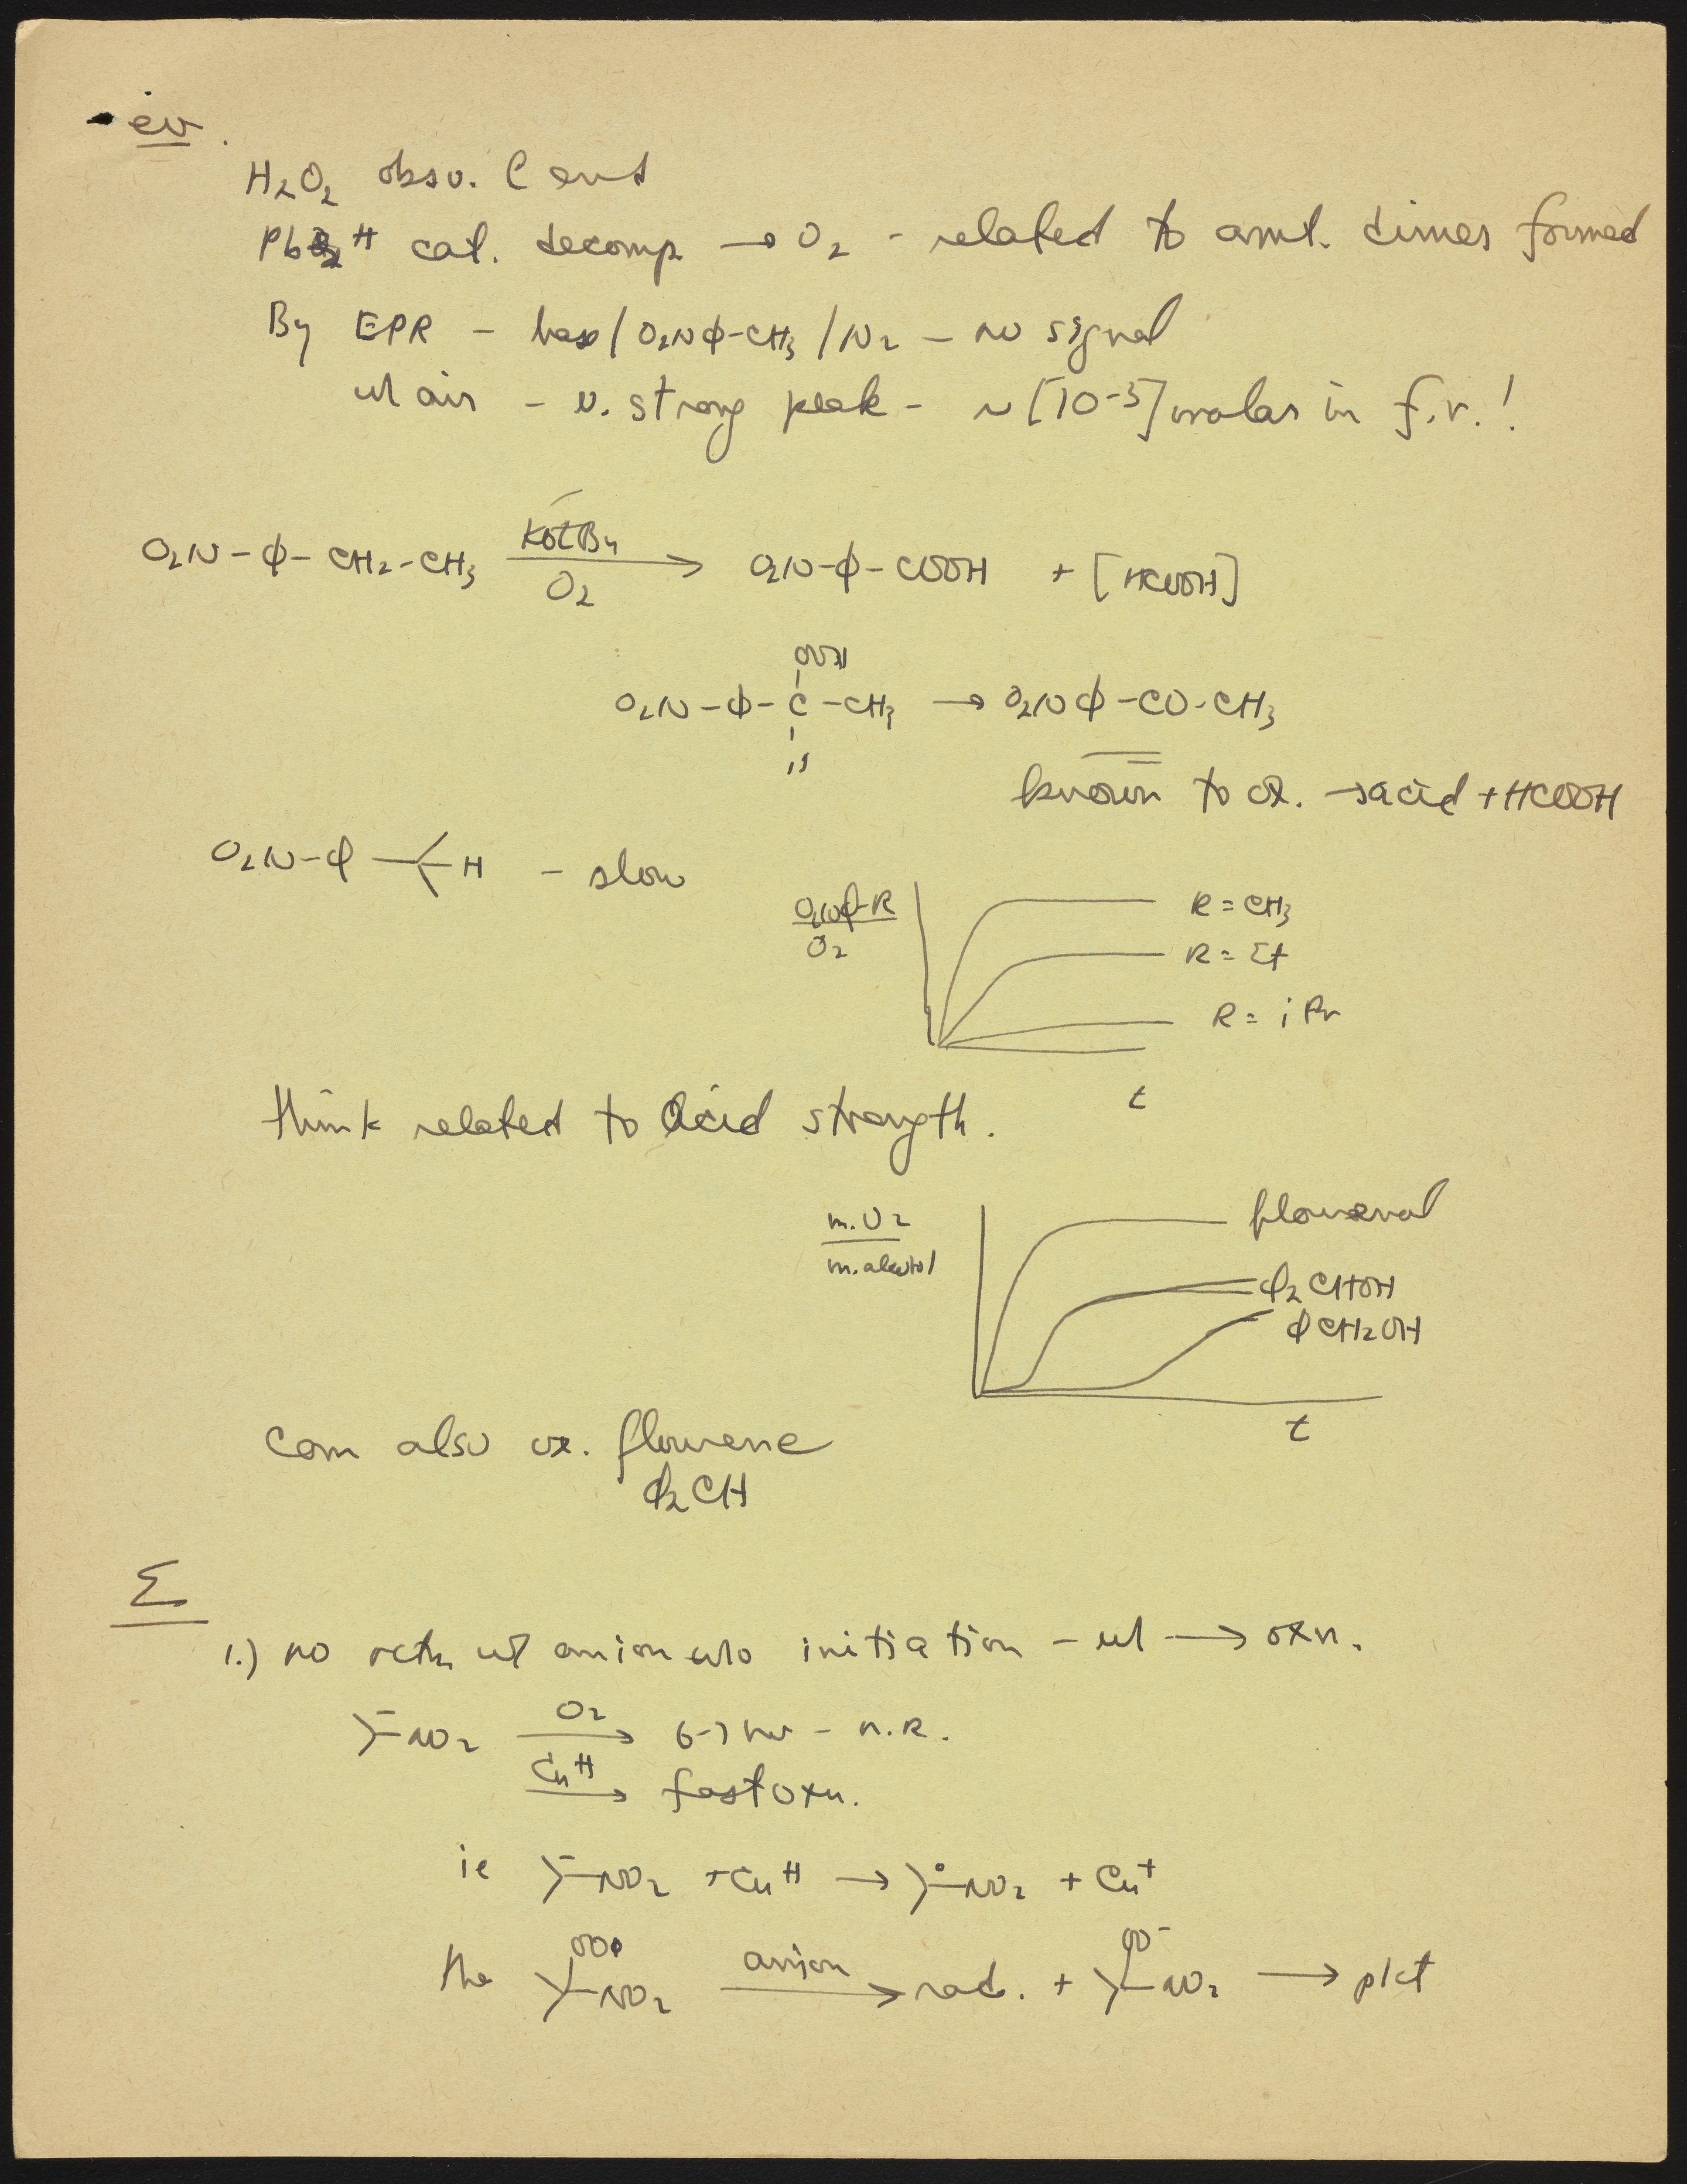 ev.
H₂O₂ obsv. @ end
Pb⁺⁺ cat. decomp → O₂ - related to amt. dimer formed
By EPR - base/O₂NΦ-CH₃/N₂ - no signal
w/ air - v. strong peak - ~[10⁻³] molar in f.r.!
O₂N-Φ-CH₂-CH₃ KOtBu / O₂ → O₂N-Φ-COOH + [HCOOH]
OOH
O₂N-Φ-C-CH₃ → O₂NΦ-CO-CH₃
known to ox. → acid + HCOOH
O₂N-Φ-H - slow
O₂NΦ-R / O₂
R = CH₃
R = Et
R = iPr
t
think related to acid strength.
m.O₂ / m.alcohol
flourenol
Φ₂CHOH
ΦCH₂OH
t
can also ox. flourene
Φ₂CH
Σ
1.) no rctn w/ anion w/o initiation - w/ → oxn.
-NO₂ O₂ → 6-7 hr - n.R.
Cu⁺⁺ → fast oxn.
ie -NO₂ + Cu⁺⁺ → •-NO₂ + Cu⁺
the OO• -NO₂ anion → rad. + OO⁻ -NO₂ → pdct